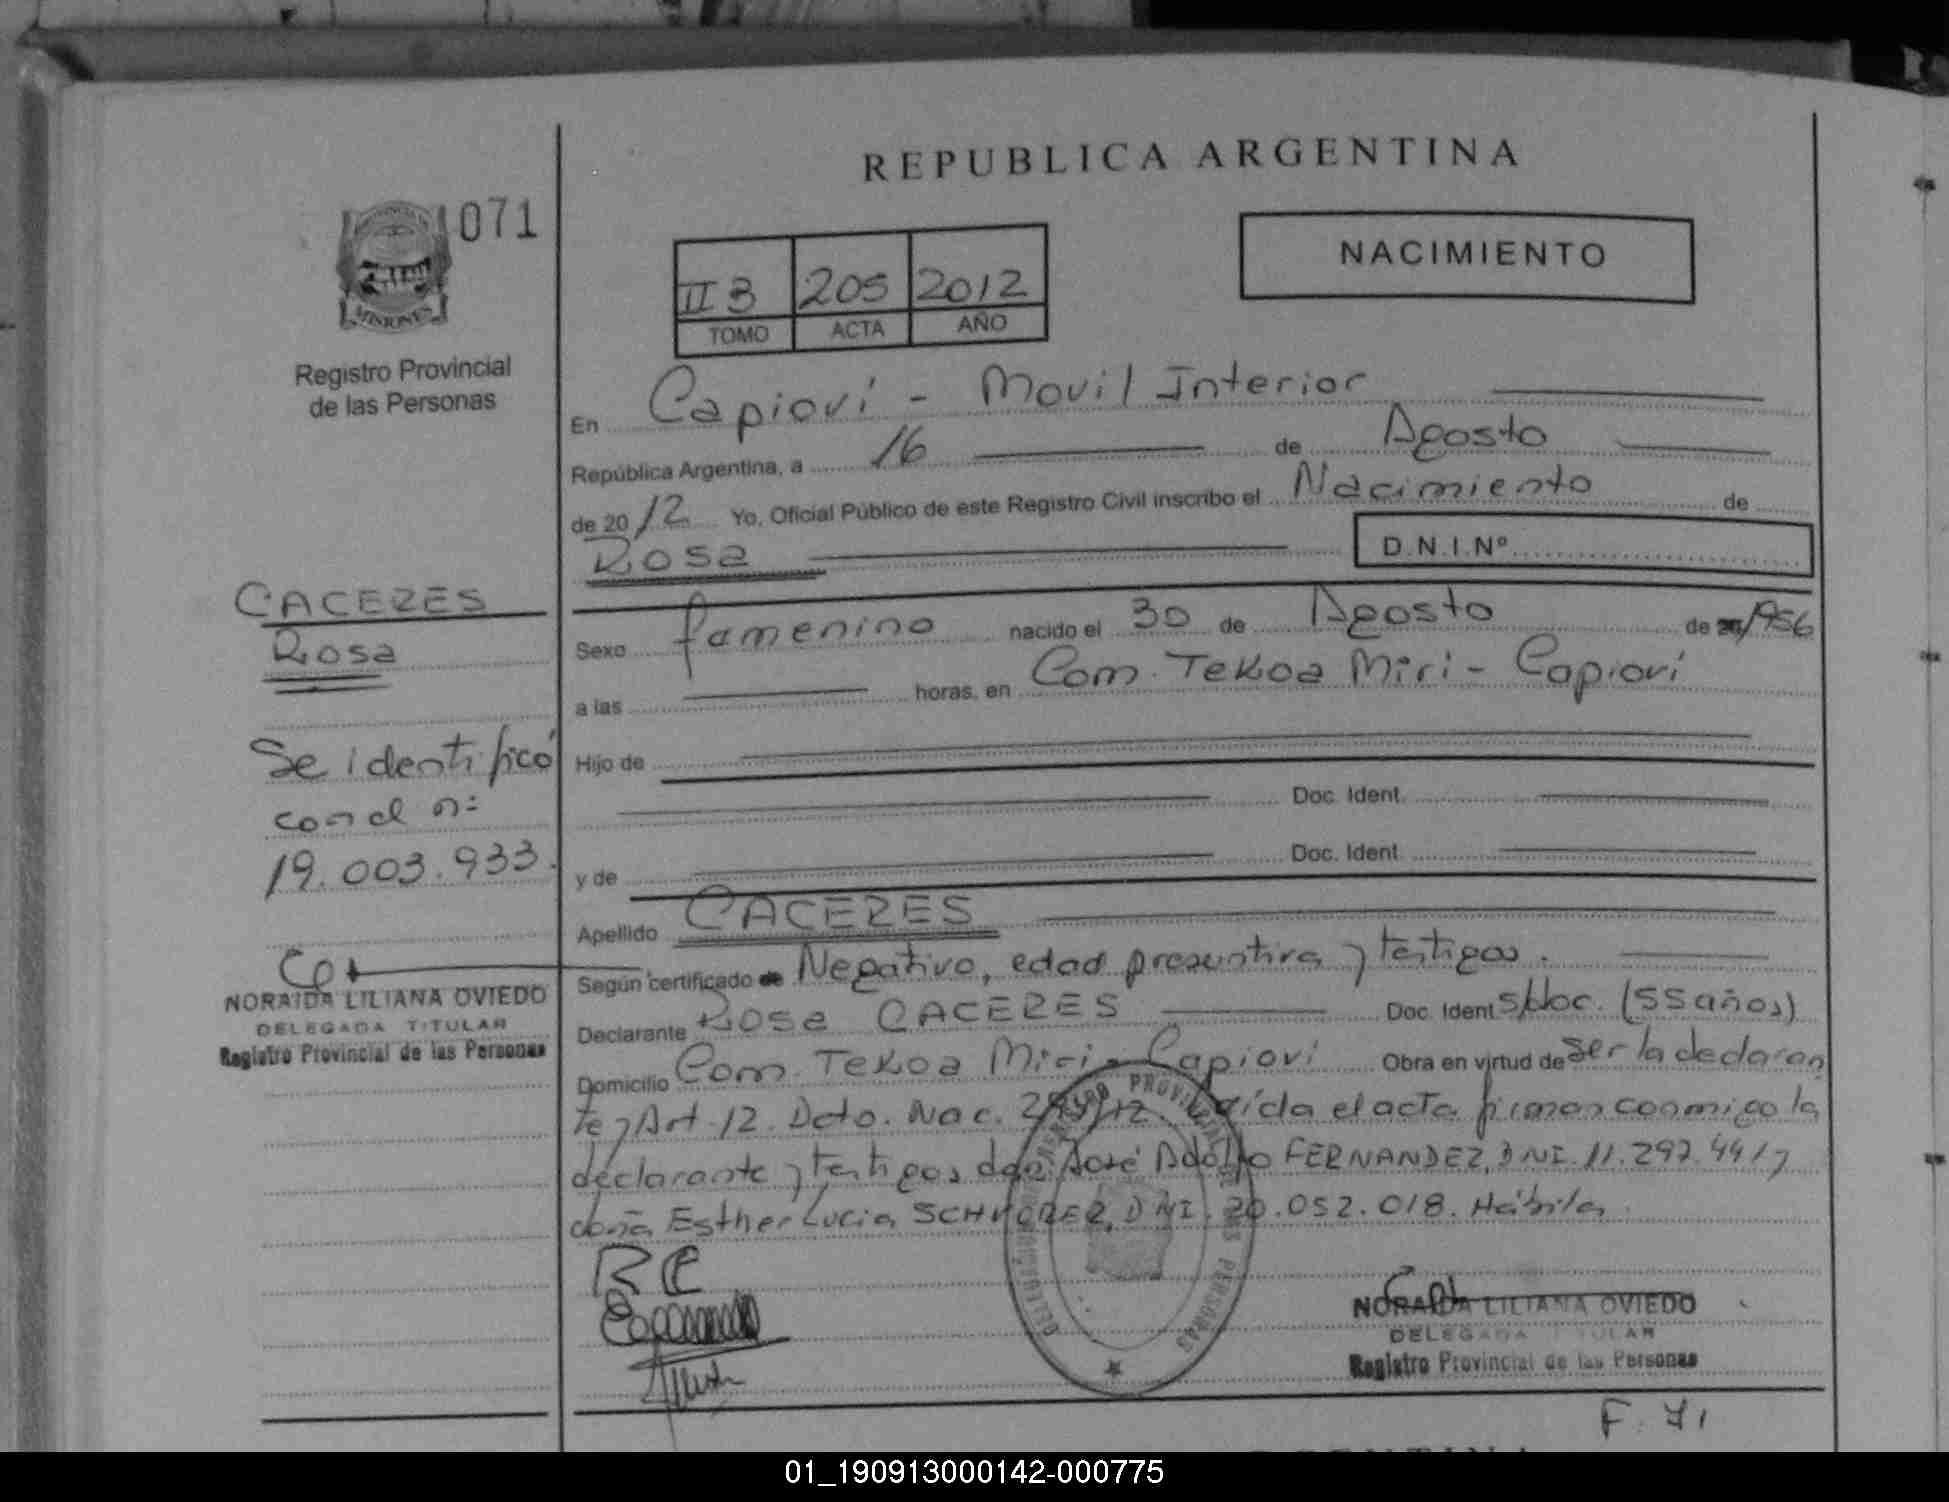 REPUBLICA ARGENTINA
071
PROVINCIA DE
MISIONES
Registro Provincial
de las Personas
NACIMIENTO
II B 205 2012
TOMO ACTA AÑO
En Capioví - Movil Interior
República Argentina, a 16 de Agosto
de 2012 Yo, Oficial Público de este Registro Civil inscribo el Nacimiento de
Rosa D.N.I.Nº
CACERES
Rosa
Se identificó
con el n:
19.003.933.
NORAIDA LILIANA OVIEDO
DELEGADA TITULAR
Registro Provincial de las Personas
Sexo famenino nacido el 30 de Agosto de 1956
a las horas, en Com. Tekoa Miri - Capiovi
Hijo de
Doc. Ident.
y de Doc. Ident
Apellido CACERES
Según certificado de Negativo, edad presuntiva y testigos.
Declarante Rosa CACERES Doc. Ident s/doc. (55 años)
Domicilio Com. Tekoa Miri - Capiovi Obra en virtud de ser la declaran
te y Art. 12. Dcto. Nac. Leída el acta firman conmigo la
declarante y testigos don José Adolfo FERNANDEZ, DNI. 11.297.441 y
doña Esther Lucia DNI. 20.052.018. Hábiles.
RC
REGISTRO PROVINCIAL DE LAS PERSONAS
NORAIDA LILIANA OVIEDO
DELEGADA TITULAR
Registro Provincial de las Personas
F. 71
01_190913000142-000775